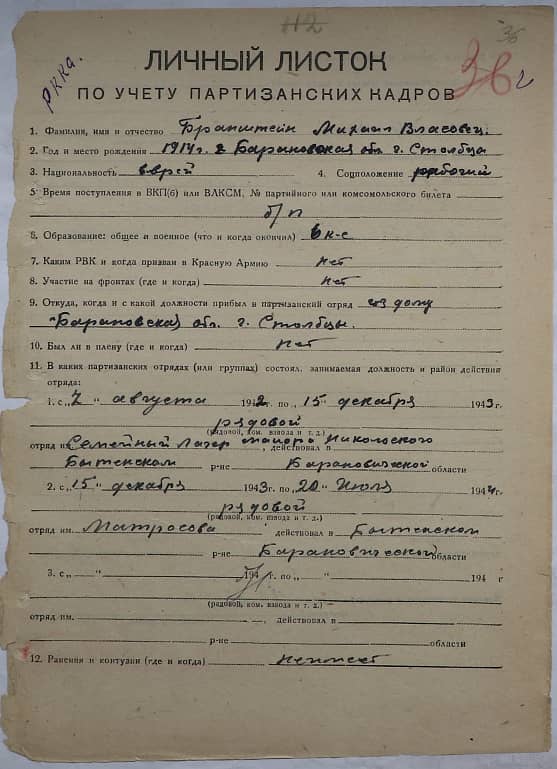 112
36
РККА.
36
ЛИЧНЫЙ ЛИСТОК
ПО УЧЕТУ ПАРТИЗАНСКИХ КАДРОВ
1. Фамилия, имя и отчество Бранштейн Михаил Власовец.
2. Год и место рождения 1914 г. Барановская обл. г. Столбца
3. Национальность еврей 4. Соцположение рабочий
5. Время поступления в ВКП(б) или ВЛКСМ, № партийного или комсомольского билета
б/п
6. Образование: общее и военное (что и когда окончил) 6 к-с
7. Каким РВК и когда призван в Красную Армию нет
8. Участие на фронтах (где и когда) нет
9. Откуда, когда и с какой должности прибыл в партизанский отряд из дому
Барановская обл. г. Столбцы.
10. Был ли в плену (где и когда) нет
11. В каких партизанских отрядах (или группах) состоял, занимаемая должность и район действия
отряда:
1. с „7" августа 1942 г. по „15" декабря 1943 г.
рядовой
(рядовой, ком. взвода и т. д.)
отряд им. Семейный Лагер майора Никольского, действовал в
Бытенском р-не Барановической области
2. с „15" декабря 1943 г. по „20" Июля 1944 г.
рядовой
(рядовой, ком. взвода и т. д.)
отряд им. Матросова действовал в Бытенском
р-не Барановической области
3. с „ " 194 г. по „ " 194 г
(рядовой, ком. взвода и т. д.)
отряд им. , действовал в
р-не области
12. Ранения и контузии (где и когда) неимеет